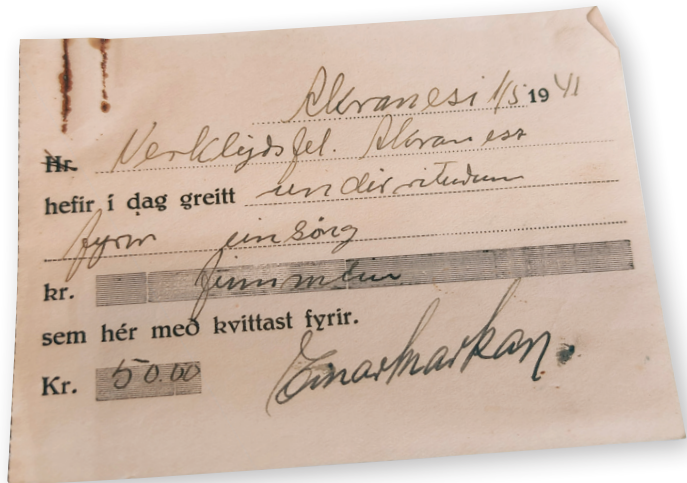 Akranesi 1/5 1941
Hr. Verklýðsfél. Akraness
hefir í dag greitt undirrituðum
fyrir einsöng
kr. fimmtíu
sem hér með kvittast fyrir.
Kr. 50.00 Einar Markan